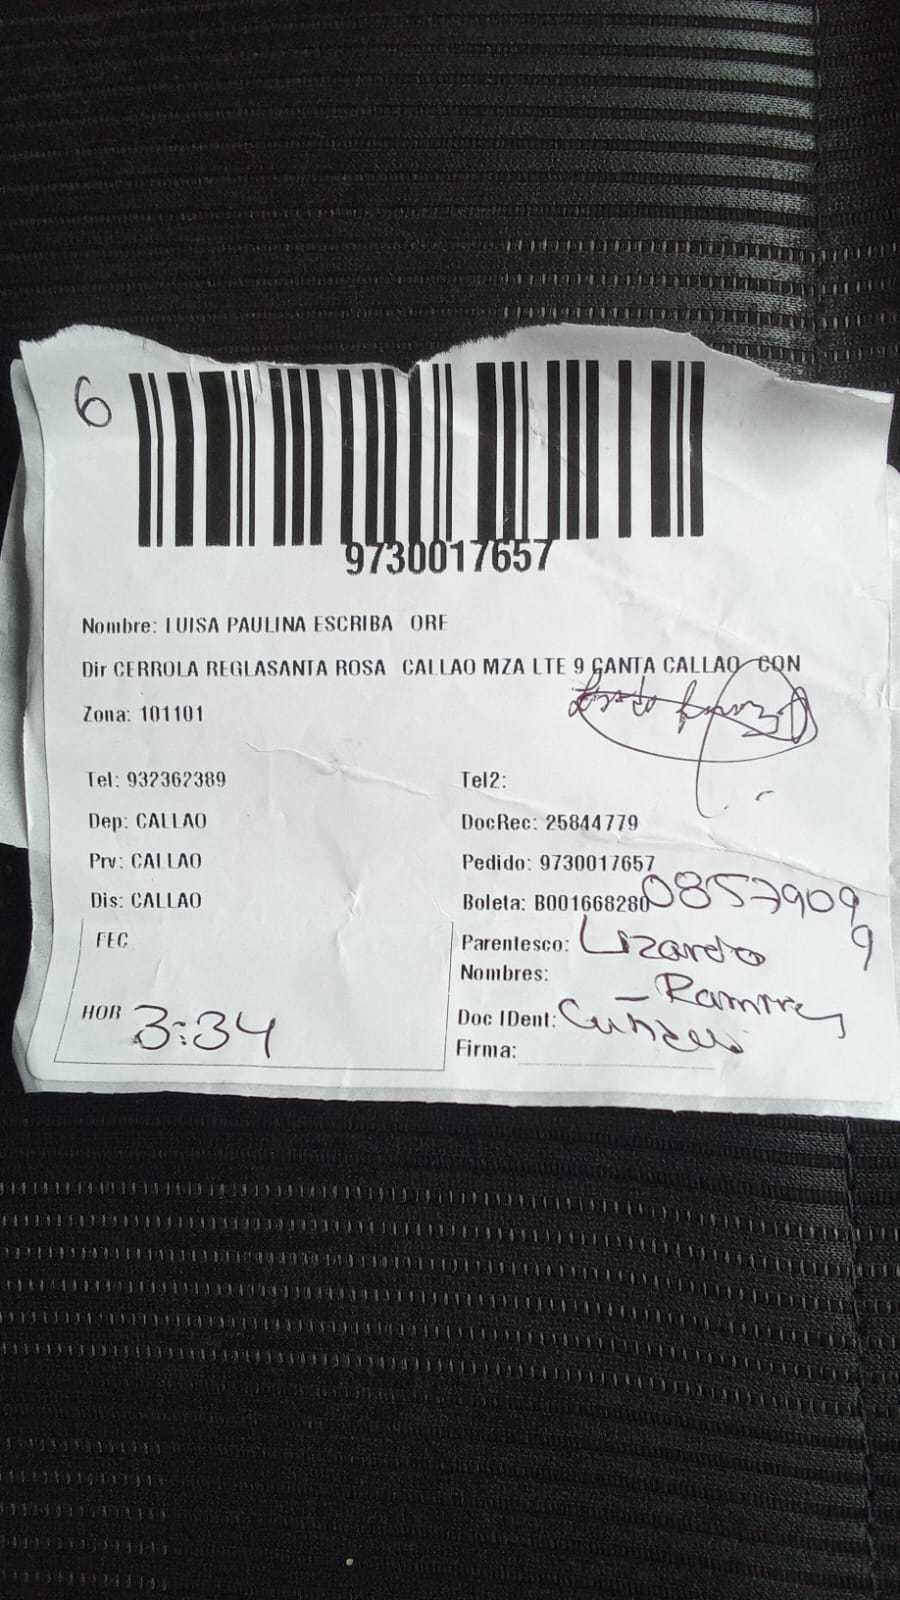 6
9730017657
Nombre: LUISA PAULINA ESCRIBA ORE
Dir CERROLA REGLASANTA ROSA CALLAO MZA LTE 9 CANTA CALLAO CON
Zona: 101101
Tel: 932362389 Tel2:
Dep: CALLAO DocRec: 25844779
Prv: CALLAO Pedido: 9730017657
Dis: CALLAO Boleta: B001668280 08579099
FEC Parentesco: Lizardo
Nombres: Ramirez
HOR 3:34 Doc IDent:
Firma: